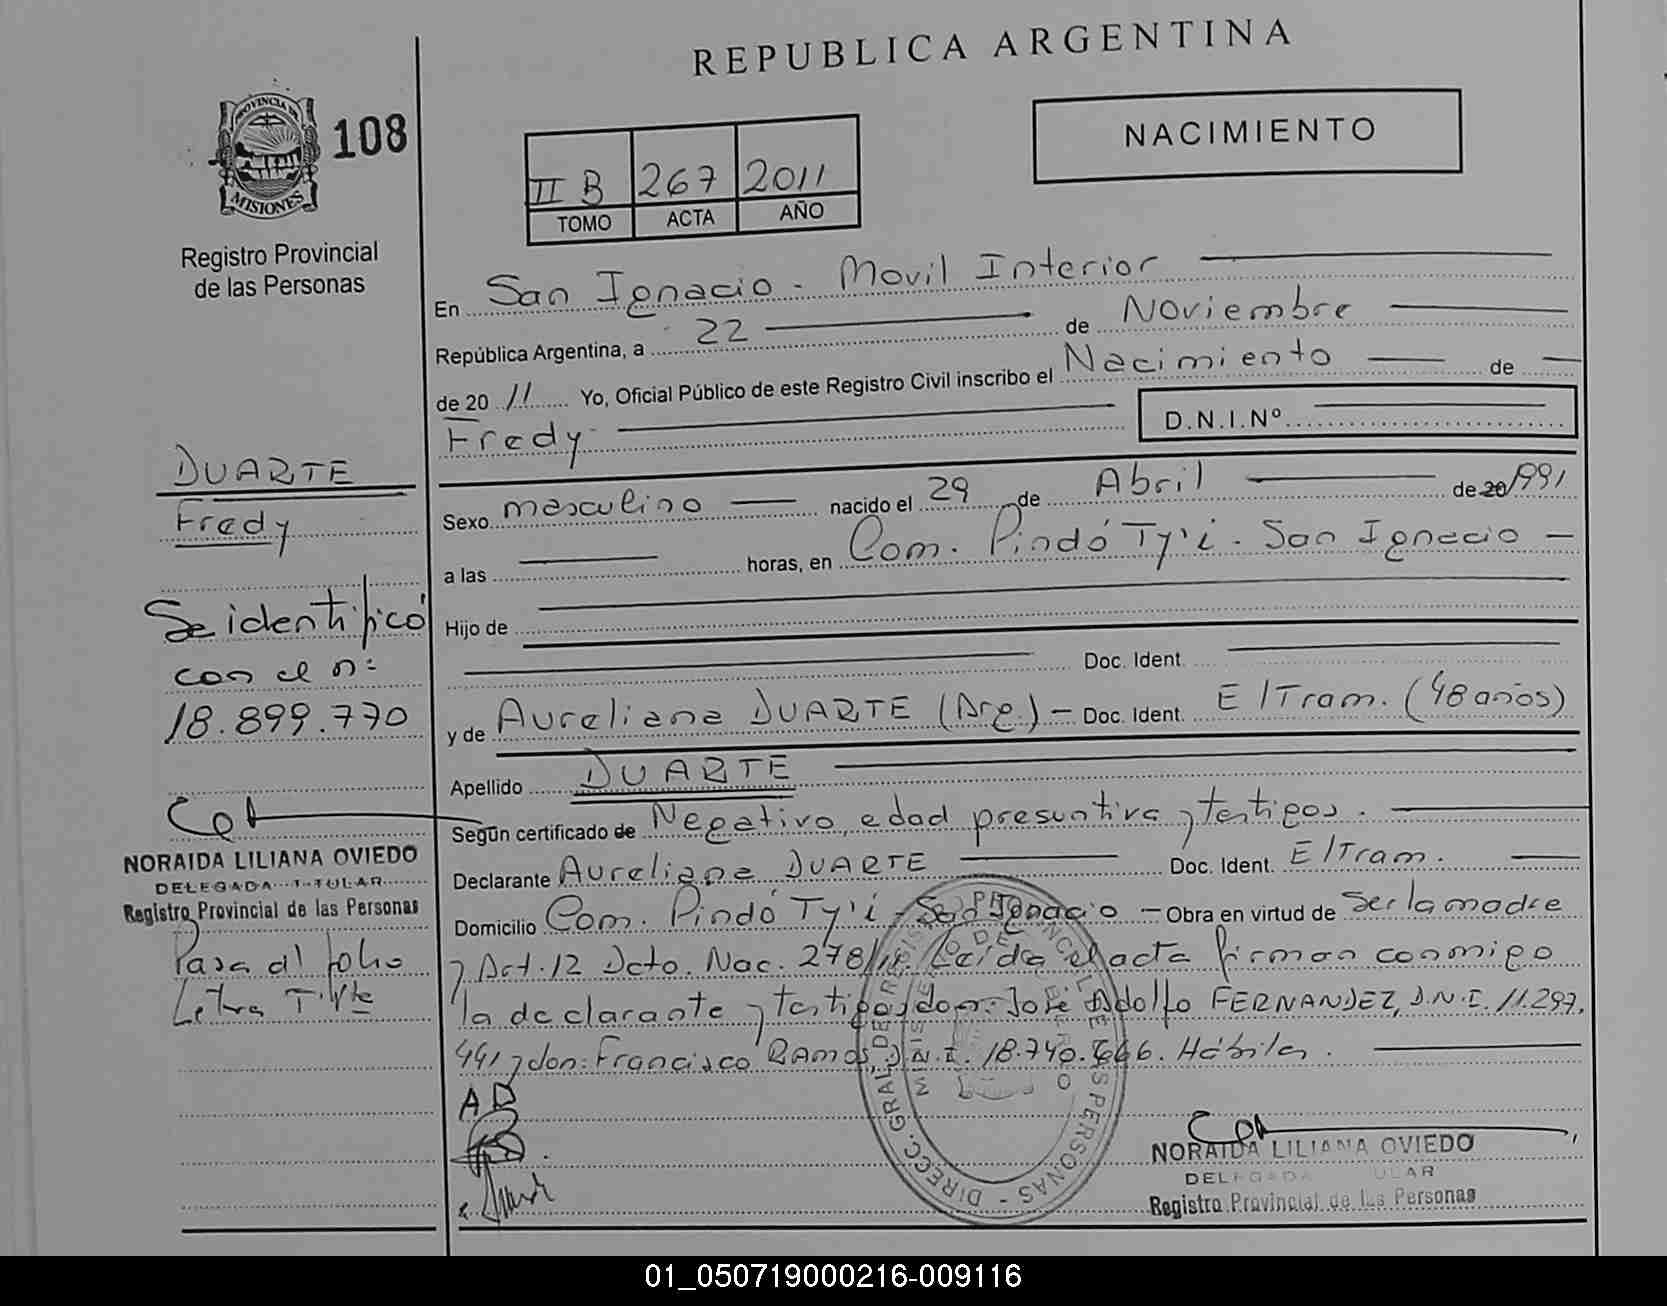 REPUBLICA ARGENTINA
PROVINCIA DE
MISIONES
108
NACIMIENTO
II B 267 2011
TOMO ACTA AÑO
Registro Provincial
de las Personas
En San Ignacio - Movil Interior
República Argentina, a 22 de Noviembre
de 20 11 Yo, Oficial Público de este Registro Civil inscribo el Nacimiento de
Fredy D.N.I.Nº
DUARTE
Fredy
Sexo masculino nacido el 29 de Abril de 20 1991
a las horas, en Com. Pindó Ty'i - San Ignacio
Se identificó
con el nº
18.899.770
Hijo de
Doc. Ident.
y de Aureliana DUARTE (Arg.) - Doc. Ident. E/Tram. (48 años)
Apellido DUARTE
Según certificado de Negativo, edad presuntiva y testigos.
Declarante Aureliana DUARTE Doc. Ident. E/Tram.
Domicilio Com. Pindó Ty'i - San Ignacio - Obra en virtud de Ser la madre
y Art. 12 Dcto. Nac. 278/11. Leída el acta firman conmigo
la declarante y testigos don: José Adolfo FERNANDEZ, D.N.I. 11.297.
441 y don: Francisco RAMOS, D.N.I. 18.740.666. Hábiles.
NORAIDA LILIANA OVIEDO
DELEGADA TITULAR
Registro Provincial de las Personas
Pasa al folio
Letra
AD
DIRECC. GRAL. DE PERSONAS
NORAIDA LILIANA OVIEDO
DELEGADA TITULAR
Registro Provincial de las Personas
01_050719000216-009116